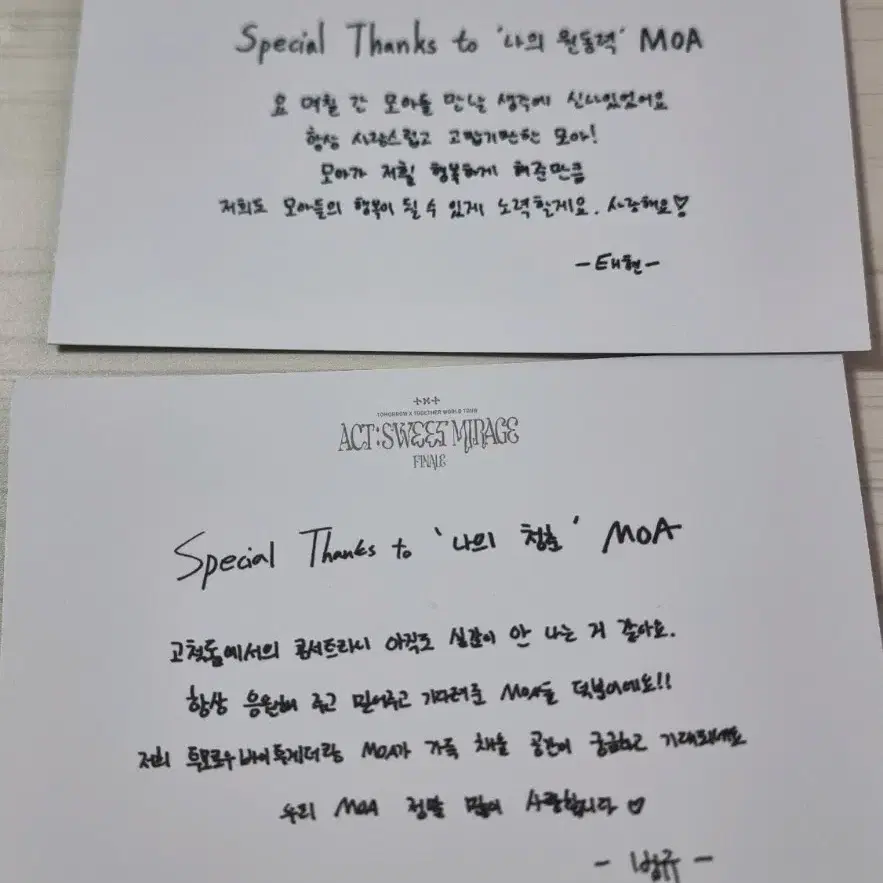 Special Thanks to '나의 원동력' MOA
요 며칠 간 모아들 만날 생각에 신나있었어요
항상 사랑스럽고 고맙기만한 모아!
모아가 저흴 행복하게 해준만큼
저희도 모아들의 행복이 될 수 있게 노력할게요. 사랑해요♡
-태현-
TXT
TOMORROW X TOGETHER WORLD TOUR
ACT:SWEET MIRAGE
FINALE
Special Thanks to '나의 청춘' MOA
고척돔에서의 콘서트라니 아직도 실감이 안 나는 거 같아요.
항상 응원해 주고 믿어주고 기다려준 MOA들 덕분이에요!!
저희 투모로우바이투게더랑 MOA가 가득 채울 공간이 궁금하고 기대돼네요
우리 MOA 정말 많이 사랑합니다♡
- 범규 -